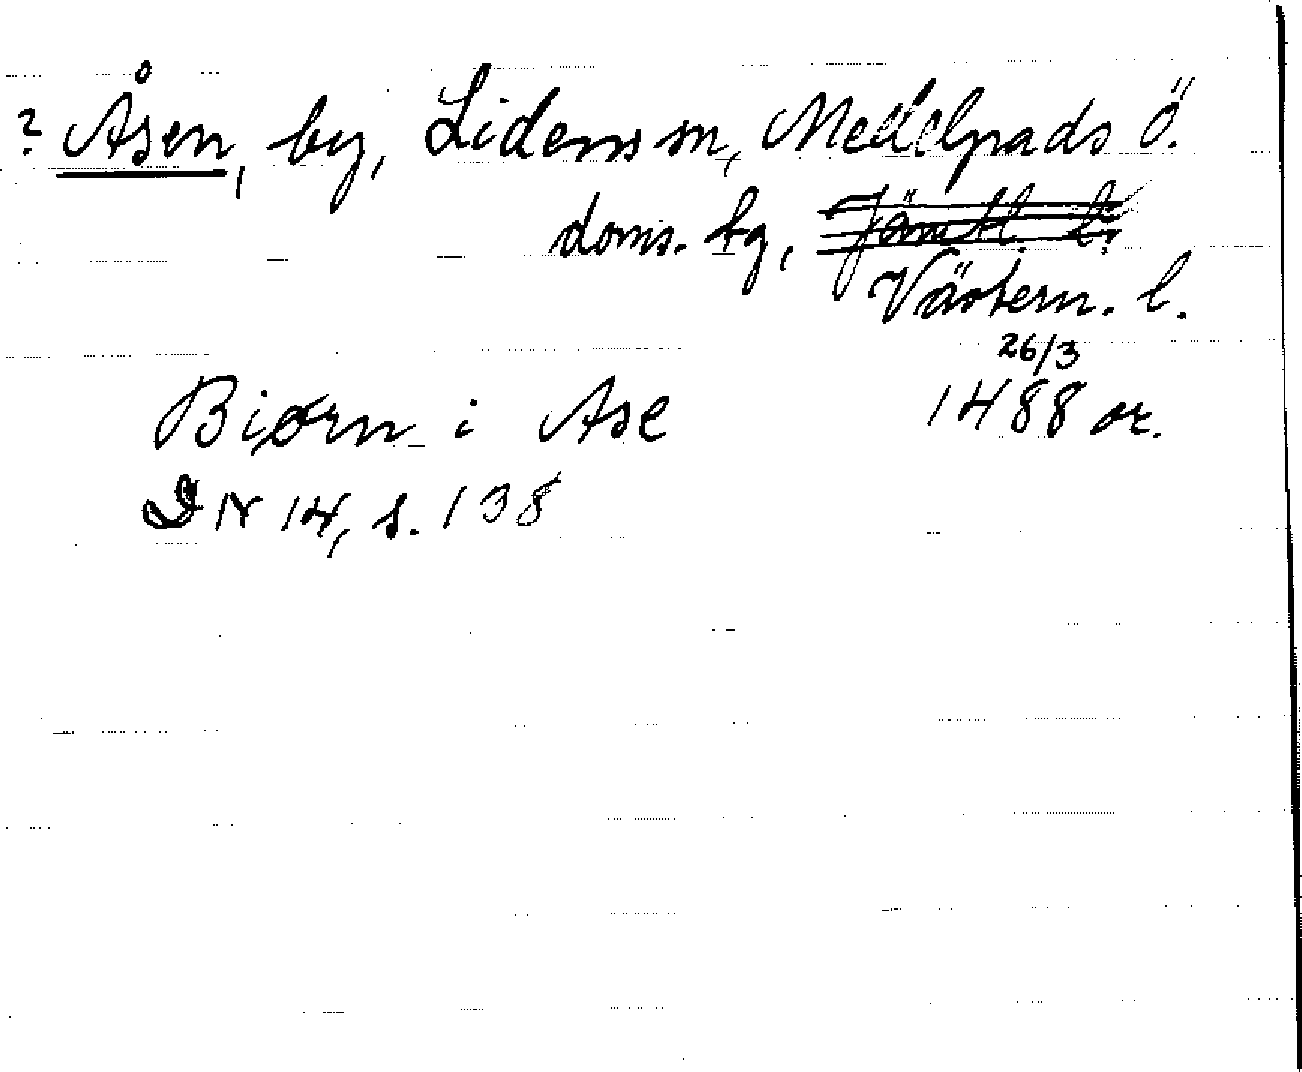 ? Åsen, by, Lidens sn, Medelpads ö.
doms. bg, Jämtl. l.
Västern. l.
26/3
Biørn i Ase 1488 or.
DN 14, s. 138